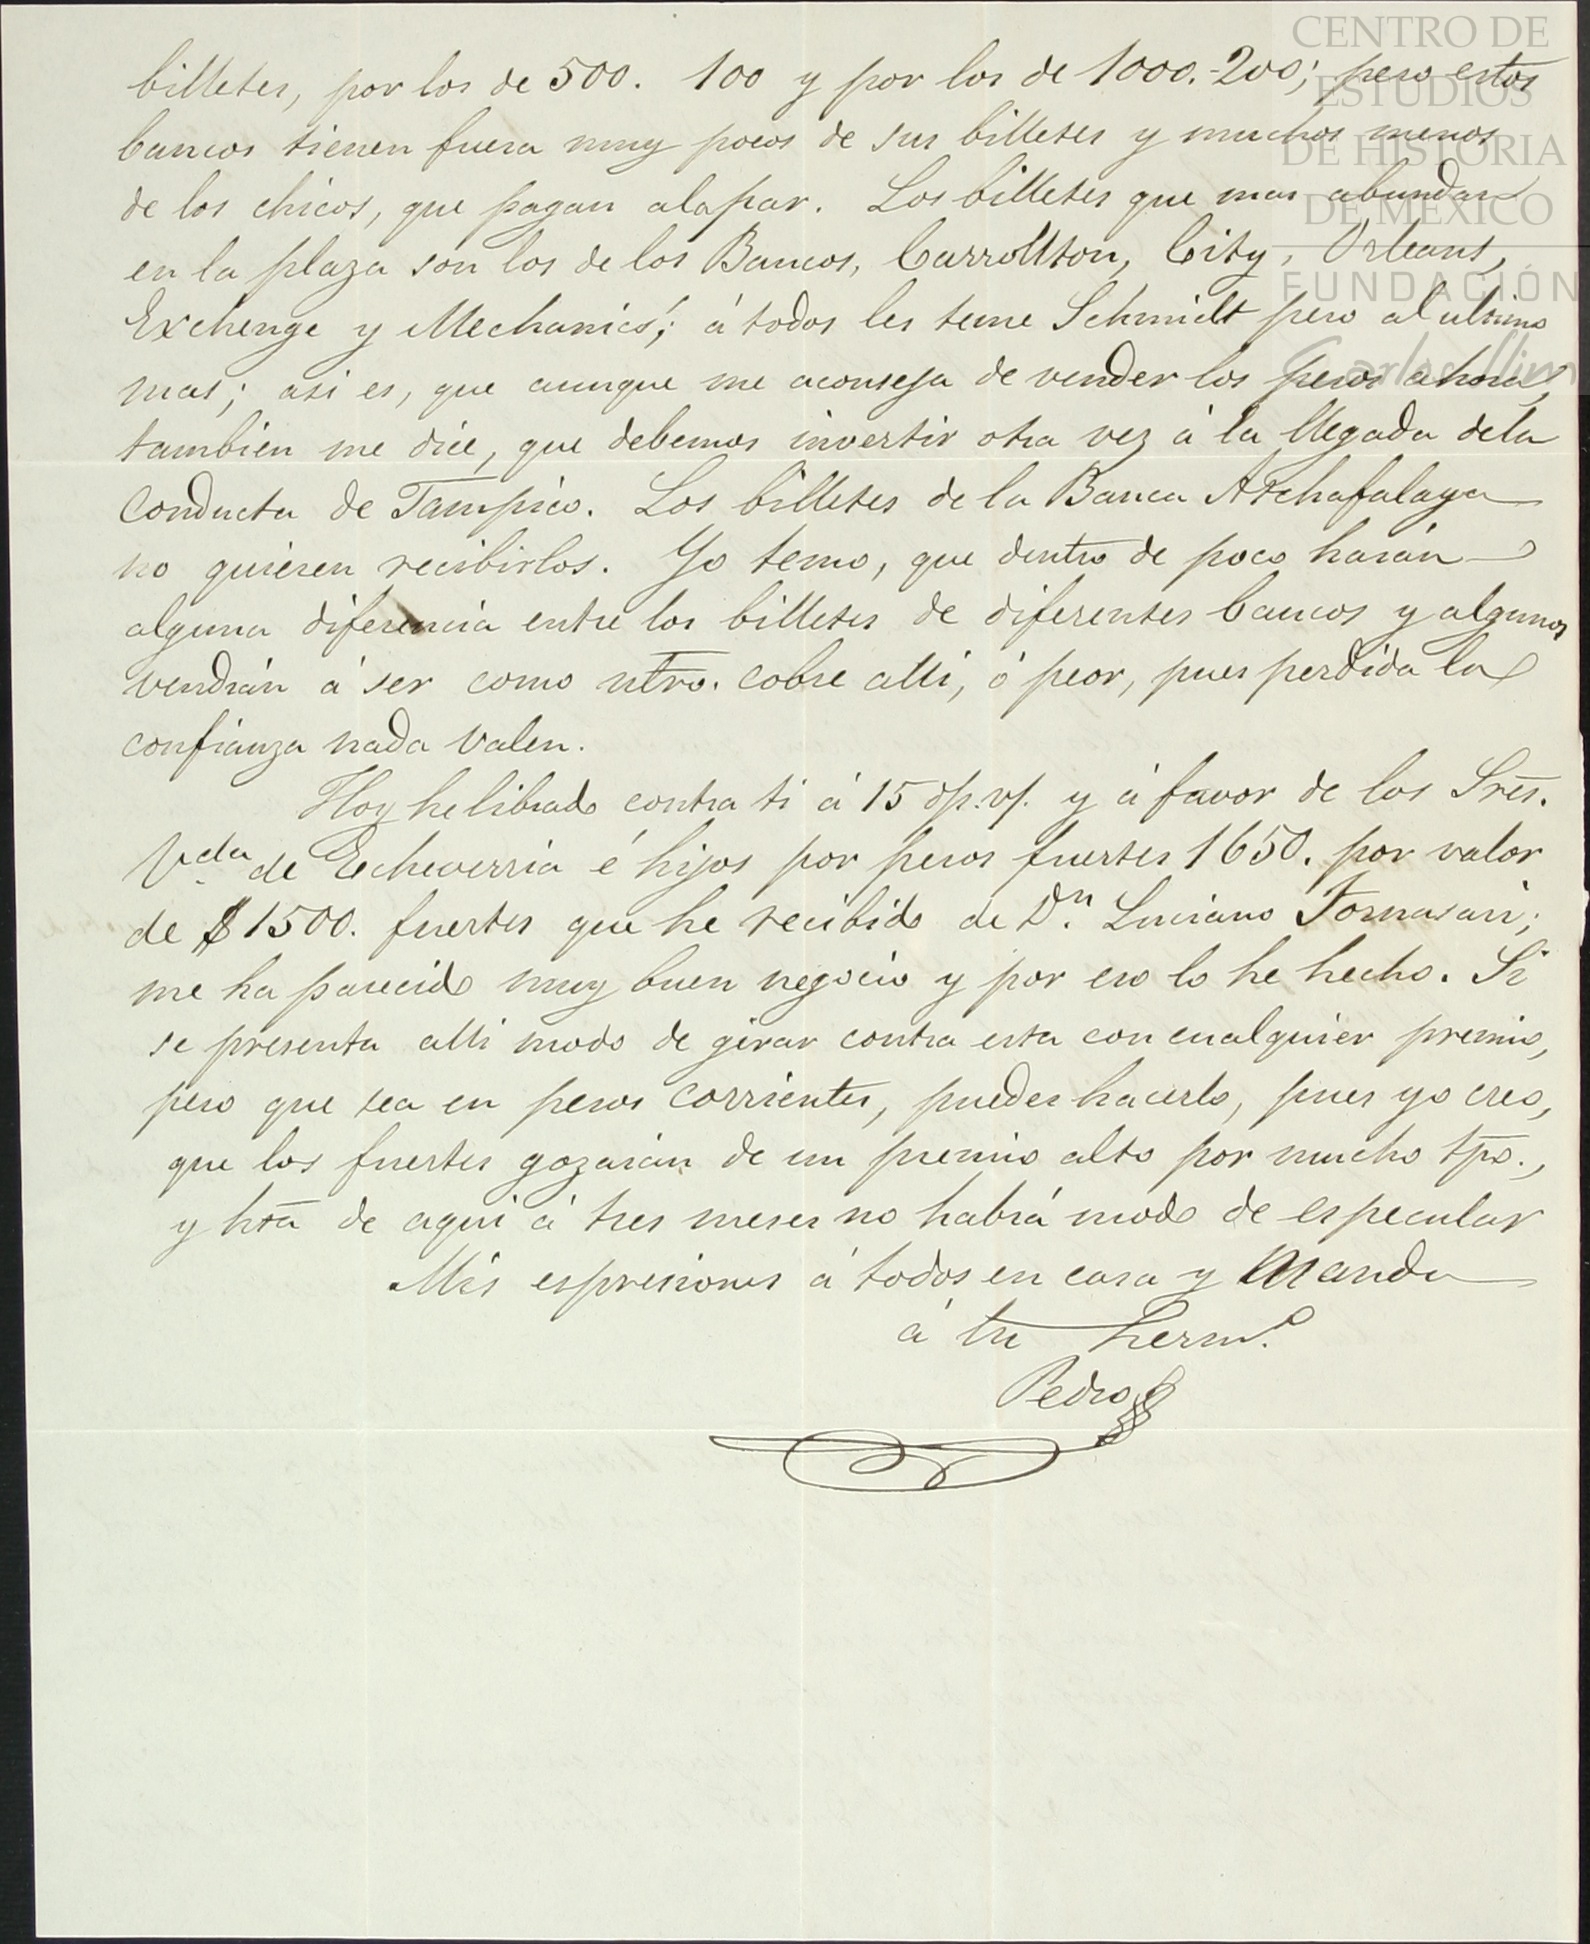 CENTRO DE
ESTUDIOS
DE HISTORIA
DE MÉXICO
FUNDACIÓN
Carlos Slim
billetes, por los de 500. 100 y por los de 1000.-200; pero estos
bancos tienen fuera muy pocos de sus billetes y muchos menos
de los chicos, que pagan alapar. Los billetes que mas abundan
en la plaza son los de los Bancos, Carrollton, City, Orleans,
Exchenge y Mechanics'; á todos les teme Schmidt pero al ultimo
mas; asi es, que aunque me aconseja de vender los pesos ahora,
tambien me dice, que debemos invertir otra vez á la llegada dela
Conducta de Tampico. Los billetes de la Banca Atchafalaya
no quieren recibirlos. Yo temo, que dentro de poco harán
alguna diferencia entre los billetes de diferentes bancos y algunos
vendrán á ser como ntro. cobre alli, ó peor, pues perdida la
confianza nada valen.
Hoy he librado contra ti á 15 d/p.v/. y á favor de los Sres.
Vda. de Echeverria é hijos por pesos fuertes 1650. por valor
de $1500. fuertes que he recibido de Dn. Luciano Fornasari;
me ha parecido muy buen negocio y por eso lo he hecho. Si
se presenta alli modo de girar contra esta con cualquier premio,
pero que sea en pesos corrientes, puedes hacerlo, pues yo creo,
que los fuertes gozarán de un premio alto por mucho tpo.,
y hta de aqui á tres meses no habrá modo de especular
Mis espresiones á todos en casa y Manda
á tu hermo.
Pedro